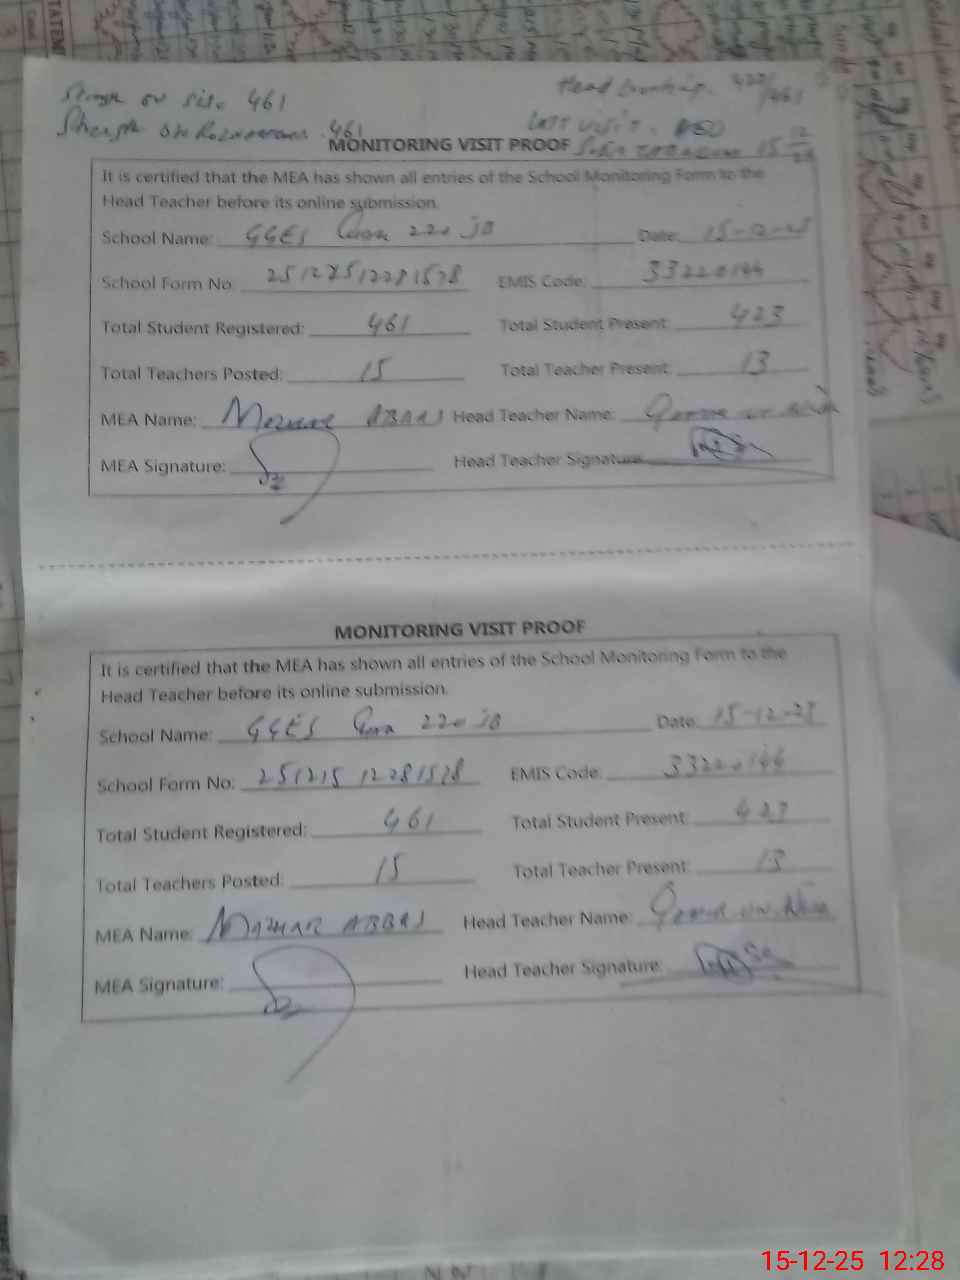 on SIS. 461
Head Counting. 423/461
Strength on 461
Last visit. AEO
MONITORING VISIT PROOF
15 12
It is certified that the MEA has shown all entries of the School Monitoring Form to the
Head Teacher before its online submission.
School Name: GGES 220 JB Date: 15-12-25
School Form No: EMIS Code: 33220144
Total Student Registered: 461 Total Student Present: 423
Total Teachers Posted: 15 Total Teacher Present: 13
MEA Name: Mazhar ABBAS Head Teacher Name:
MEA Signature: Head Teacher Signature:
MONITORING VISIT PROOF
It is certified that the MEA has shown all entries of the School Monitoring Form to the
Head Teacher before its online submission.
School Name: GGES 220 JB Date: 15-12-25
School Form No: 25121512281528 EMIS Code: 33220144
Total Student Registered: 461 Total Student Present: 423
Total Teachers Posted: 15 Total Teacher Present: 13
MEA Name: MAZHAR ABBAS Head Teacher Name:
MEA Signature: Head Teacher Signature:
15-12-25 12:28